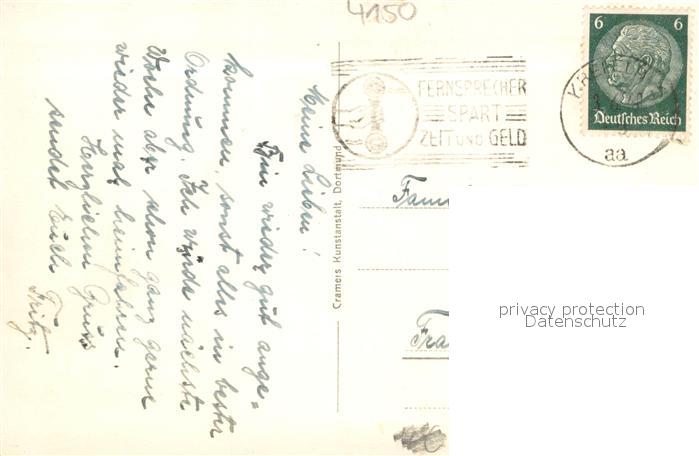 4150
Meine Lieben!
Bin wieder gut ange=
kommen, sonst alles in bester
Ordnung. Ich würde nächste
Woche aber schon ganz gerne
wieder mal heimfahren.
Herzlichen Gruss
sendet Euch Fritz.
Cramers Kunstanstalt, Dortmund
FERNSPRECHER
SPART
ZEIT UND GELD
6 6
Deutsches Reich
aa
Fam
Fra
privacy protection
Datenschutz